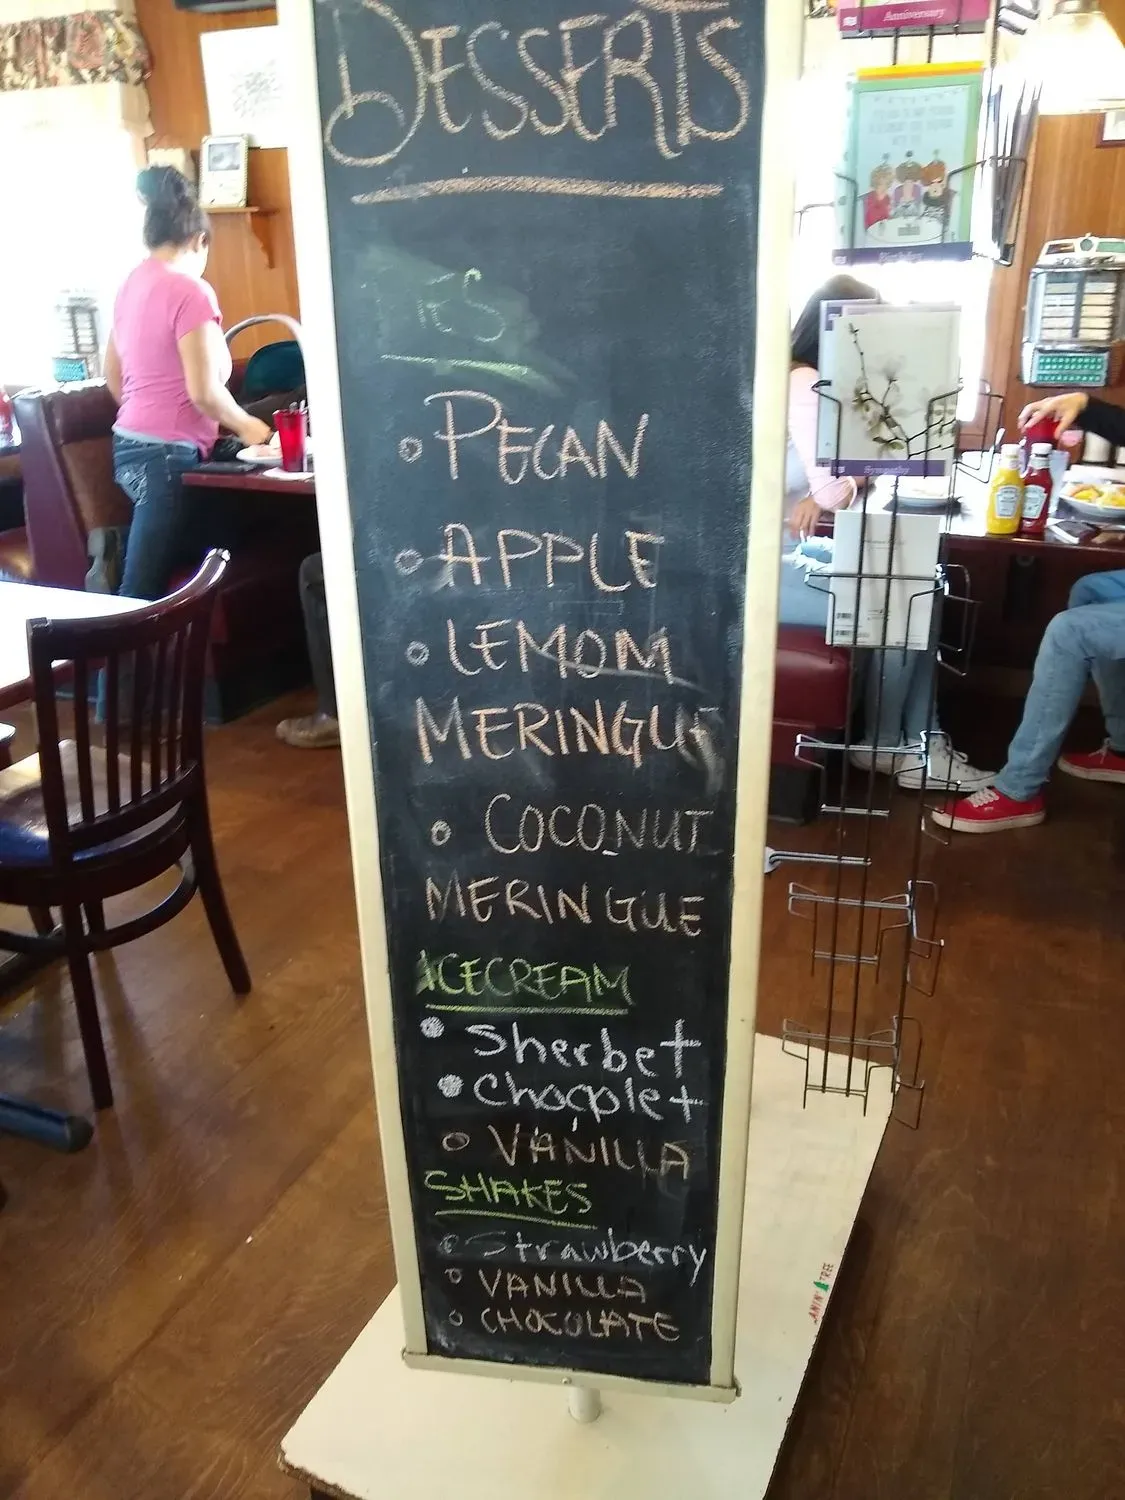 Anniversary
DESSERTS
IES
Birthday
• PECAN
Sympathy
• APPLE
• LEMOM
MERINGUE
• COCONUT
MERINGUE
ICECREAM
• Sherbet
• Chocplet
• VANILLA
SHAKES
• Strawberry
• VANILLA
• CHOCOLATE